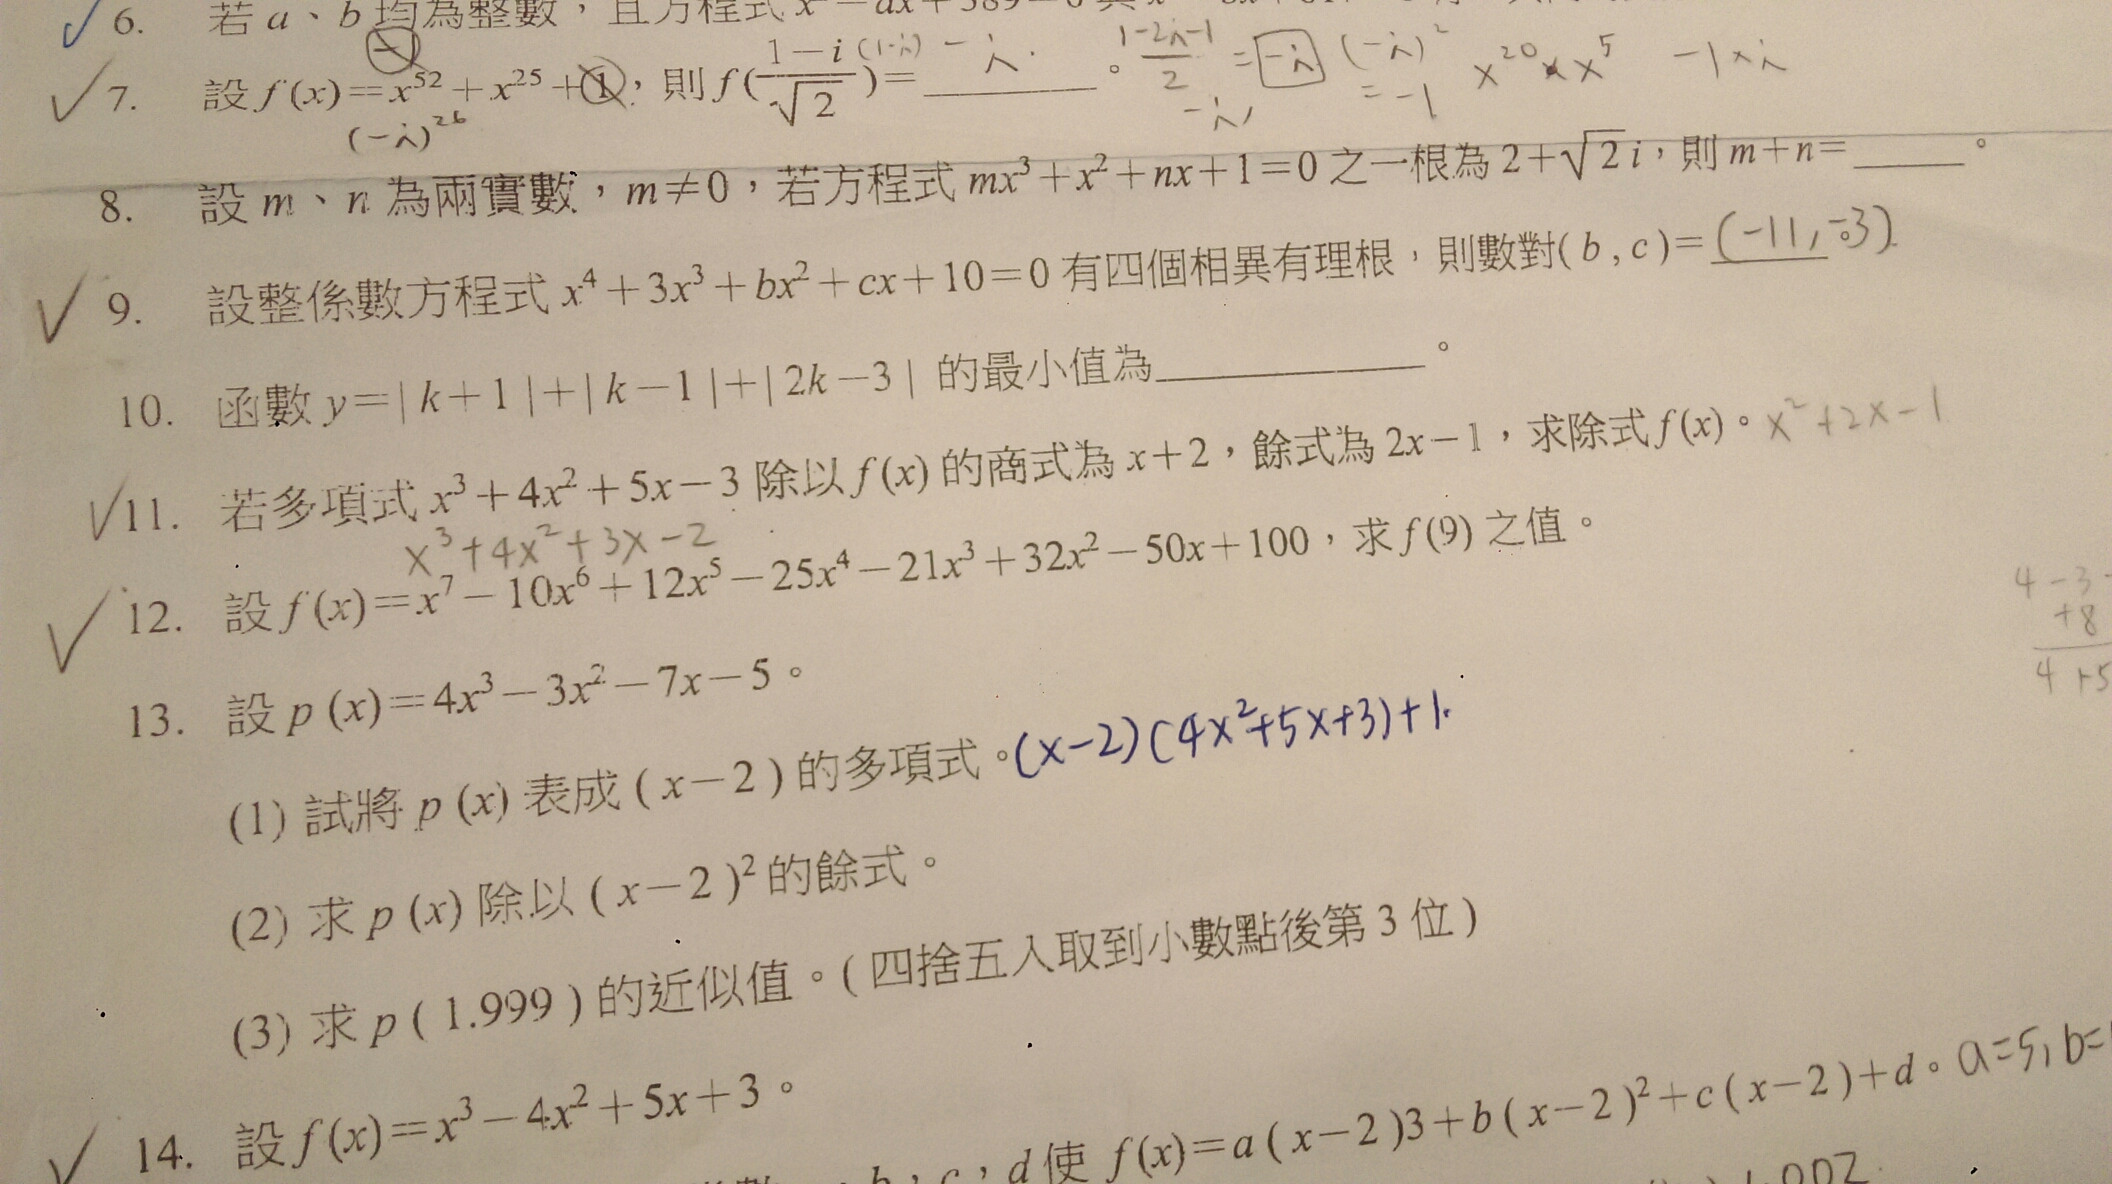 6. 若 a、b 均為整數，且方程式
✓ 7. 設 f(x)=x⁵²+x²⁵+1，則 f((1−i)/√2)=______。 (1-i) -i (1-2i-1)/2 = -i (-i)² = -1 x²⁰ x x⁵ -1×i
-1 (-i)²⁶ -i,
8. 設 m、n 為兩實數，m≠0，若方程式 mx³+x²+nx+1=0 之一根為 2+√2 i，則 m+n=______。
✓ 9. 設整係數方程式 x⁴+3x³+bx²+cx+10=0 有四個相異有理根，則數對( b , c )= (-11, -3)。
10. 函數 y=| k+1 |+| k−1 |+| 2k−3 | 的最小值為______。
✓ 11. 若多項式 x³+4x²+5x−3 除以 f(x) 的商式為 x+2，餘式為 2x−1，求除式 f(x)。 x²+2x-1
x³+4x²+3x-2
✓ 12. 設 f(x)=x⁷−10x⁶+12x⁵−25x⁴−21x³+32x²−50x+100，求 f(9) 之值。
4-3
+8
4+5
13. 設 p (x)=4x³−3x²−7x−5。
(1) 試將 p (x) 表成 ( x−2 ) 的多項式。 (x-2)(4x²+5x+3)+1.
(2) 求 p (x) 除以 ( x−2 )² 的餘式。
(3) 求 p ( 1.999 ) 的近似值。( 四捨五入取到小數點後第 3 位 )
✓ 14. 設 f(x)=x³−4x²+5x+3。
b，c，d 使 f(x)=a ( x−2 )3+b ( x−2 )²+c ( x−2 )+d。 a=5, b=